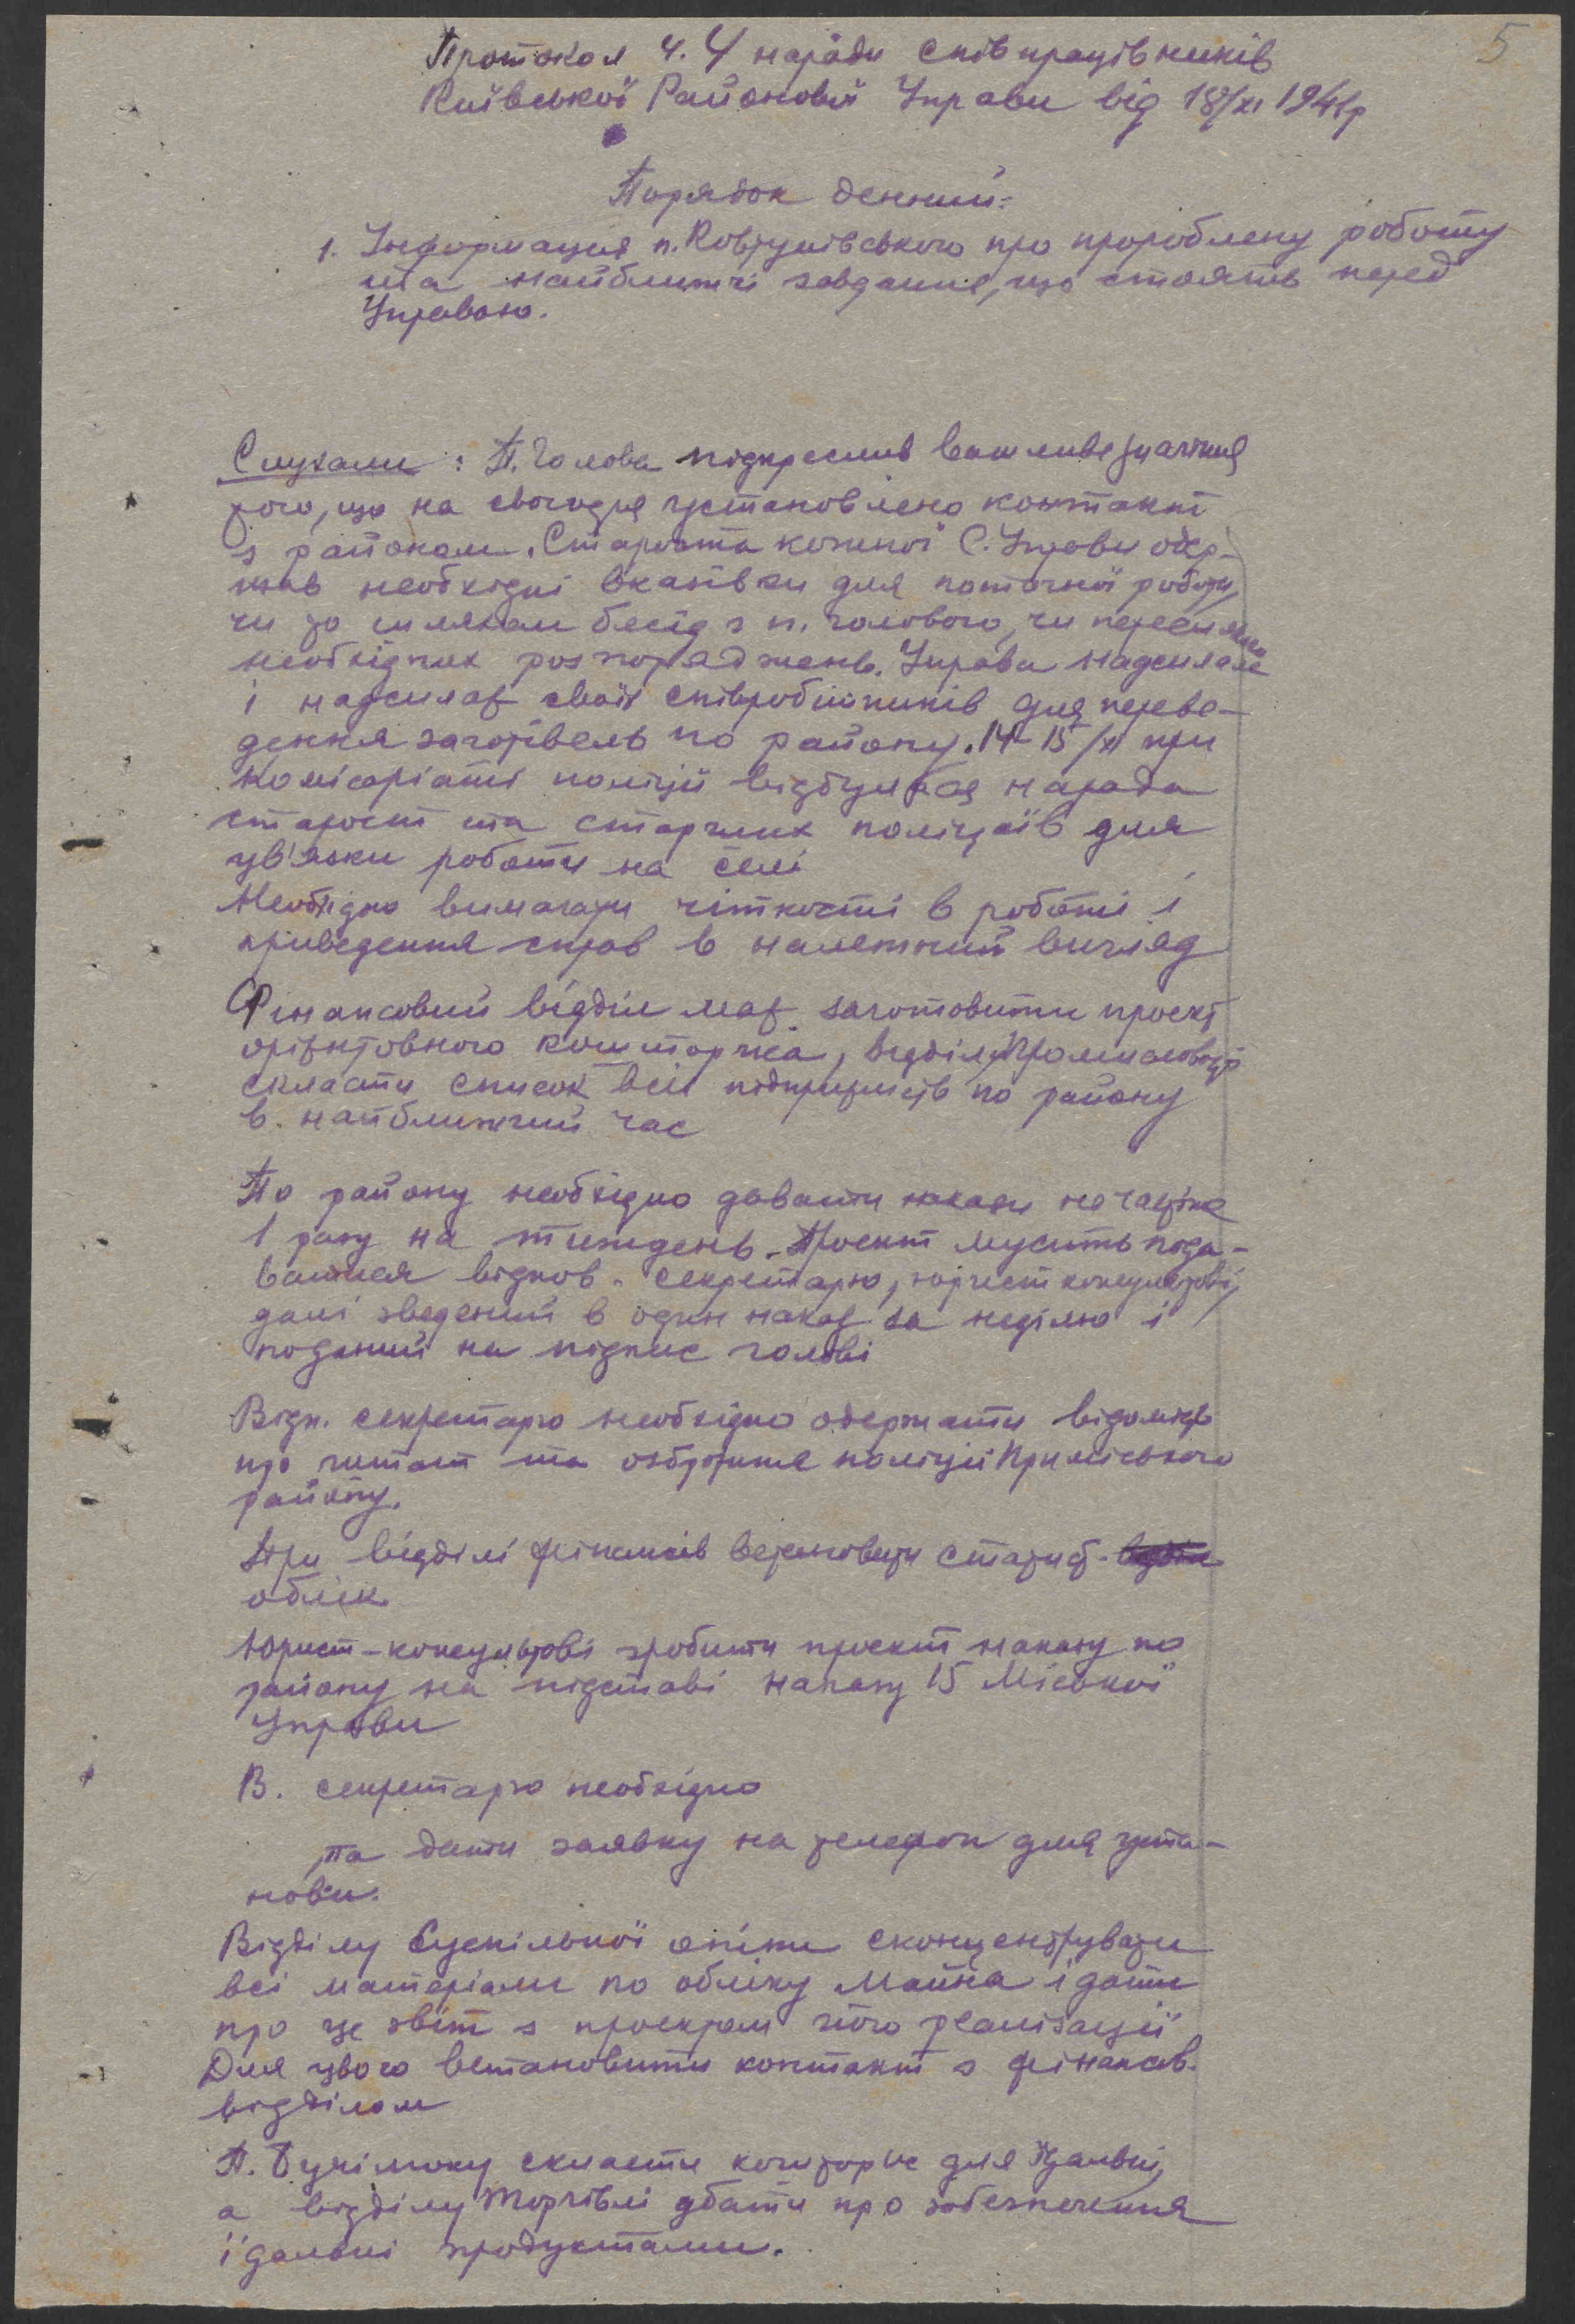 5
Протокол ч. 4 наради співпрацівників
Київської Районової Управи від 18/XI 1941р
Порядок денний:
1. Інформація п. Ковтунівського про пророблену роботу
та найближчі завдання, що стоять перед
Управою.
Слухали: П. Голова підкреслив важливе значіння
того, що на сьогодня установлено контакт
з районом. Староста кожної С. Управи одер-
жав необхідні вказівки для поточної роботи,
чи то шляхом бесід з п. головою, чи
необхідних розпоряджень. Управа надсилала
і надсилає своїх співробітників для переве-
дення заготівель по району. 14-15/XI при
комісаріаті поліції відбулася нарада
старост та старших поліцаїв для
ув'язки роботи на селі
Необхідно вимагати чіткости в роботі і
приведення справ в належний вигляд
Фінансовий відділ має заготовити проект
орієнтовного кошториса, відділ Промисловости
скласти список всіх підприємств по району
в найближчий час
По району необхідно давати накази не частіше
1 разу на тиждень. Проект мусить пода-
ватися відпов. секретарю, юрист консультові,
далі зведений в один наказ за неділю і
поданий на підпис голові
Відп. секретарю необхідно одержати відомість
про штат та озброєння поліції Приміського
району.
При відділі фінансів встановити статист.
облік
Юрист-консультові зробити проект наказу по
району на підставі наказу 15 Міської
Управи
В. секретарю необхідно
та дати заявку на телефон для уста-
нови.
Відділу Суспільної опіки сконцентрувати
всі матеріали по обліку майна і дати
про це звіт з проектом його реалізації
Для цього встановити контакт з фінансов.
відділом
П. Бучімоку скласти кошторис для їдальні,
а відділу Торгівлі дбати про забезпечення
їдальні продуктами.